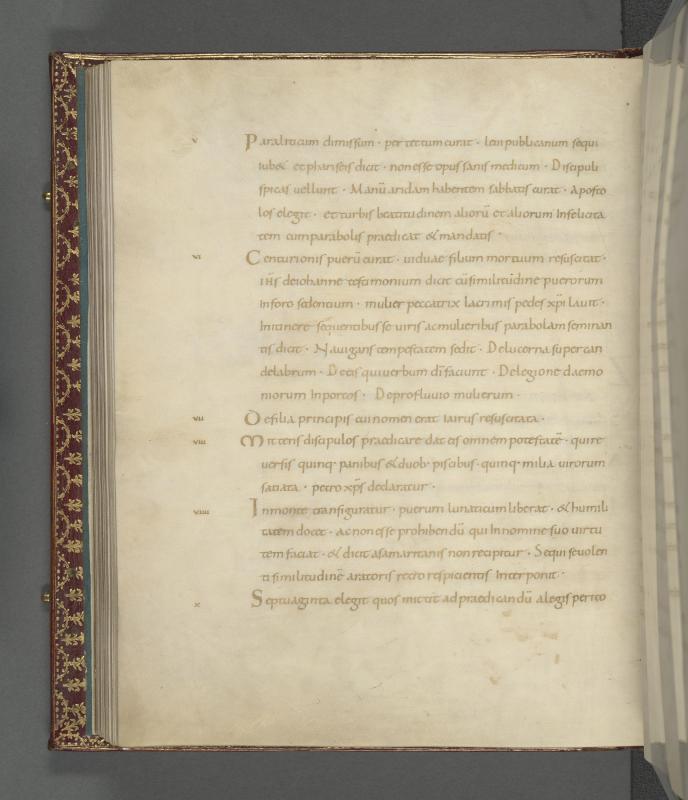 v Paraliticum dimissum · per tectum curat · leui publicanum sequi
iubet et phariseis dicit · non esse opus sanis medicum · Discipuli
spicas uellunt · Manū aridam habentem sabbatis curat · Aposto
los elegit · et turbis beatitudinem aliorū et aliorum Infelicita
tem cum parabolis praedicat & mandatis ·
vi Centurionis puerū curat · uiduae filium mortuum resuscitat ·
ihs de iohanne testimonium dicit cū similitudine puerorum
In foro sedentium · mulier peccatrix lacrimis pedes xpi lauit ·
In itinere sequentibus se uiris ac mulieribus parabolam seminan
tis dicit · Nauigans tempestatem sedit · De lucerna super can
delabrum · De eis qui uerbum dī faciunt · De legione daemo
niorum In porcos · De profluuio mulierum ·
vii De filia principis cui nomen erat iairus resuscitata ·
viii Mittens discipulos praedicare dat eis omnem potestatē · qui re
uersis quinq· panibus & duob· piscibus · quinq· milia uirorum
satiata · petro xps declaratur ·
viiii In monte transfiguratur · puerum lunaticum liberat · & humili
tatem docet · Ac non esse prohibendū qui In nomine suo uirtu
tem faciat · & dicit a samaritanis non recipitur · Sequi se uolen
ti similitudinē aratoris retro respicientis Interponit ·
x Septuaginta elegit quos mittit ad praedicandū a legis perito